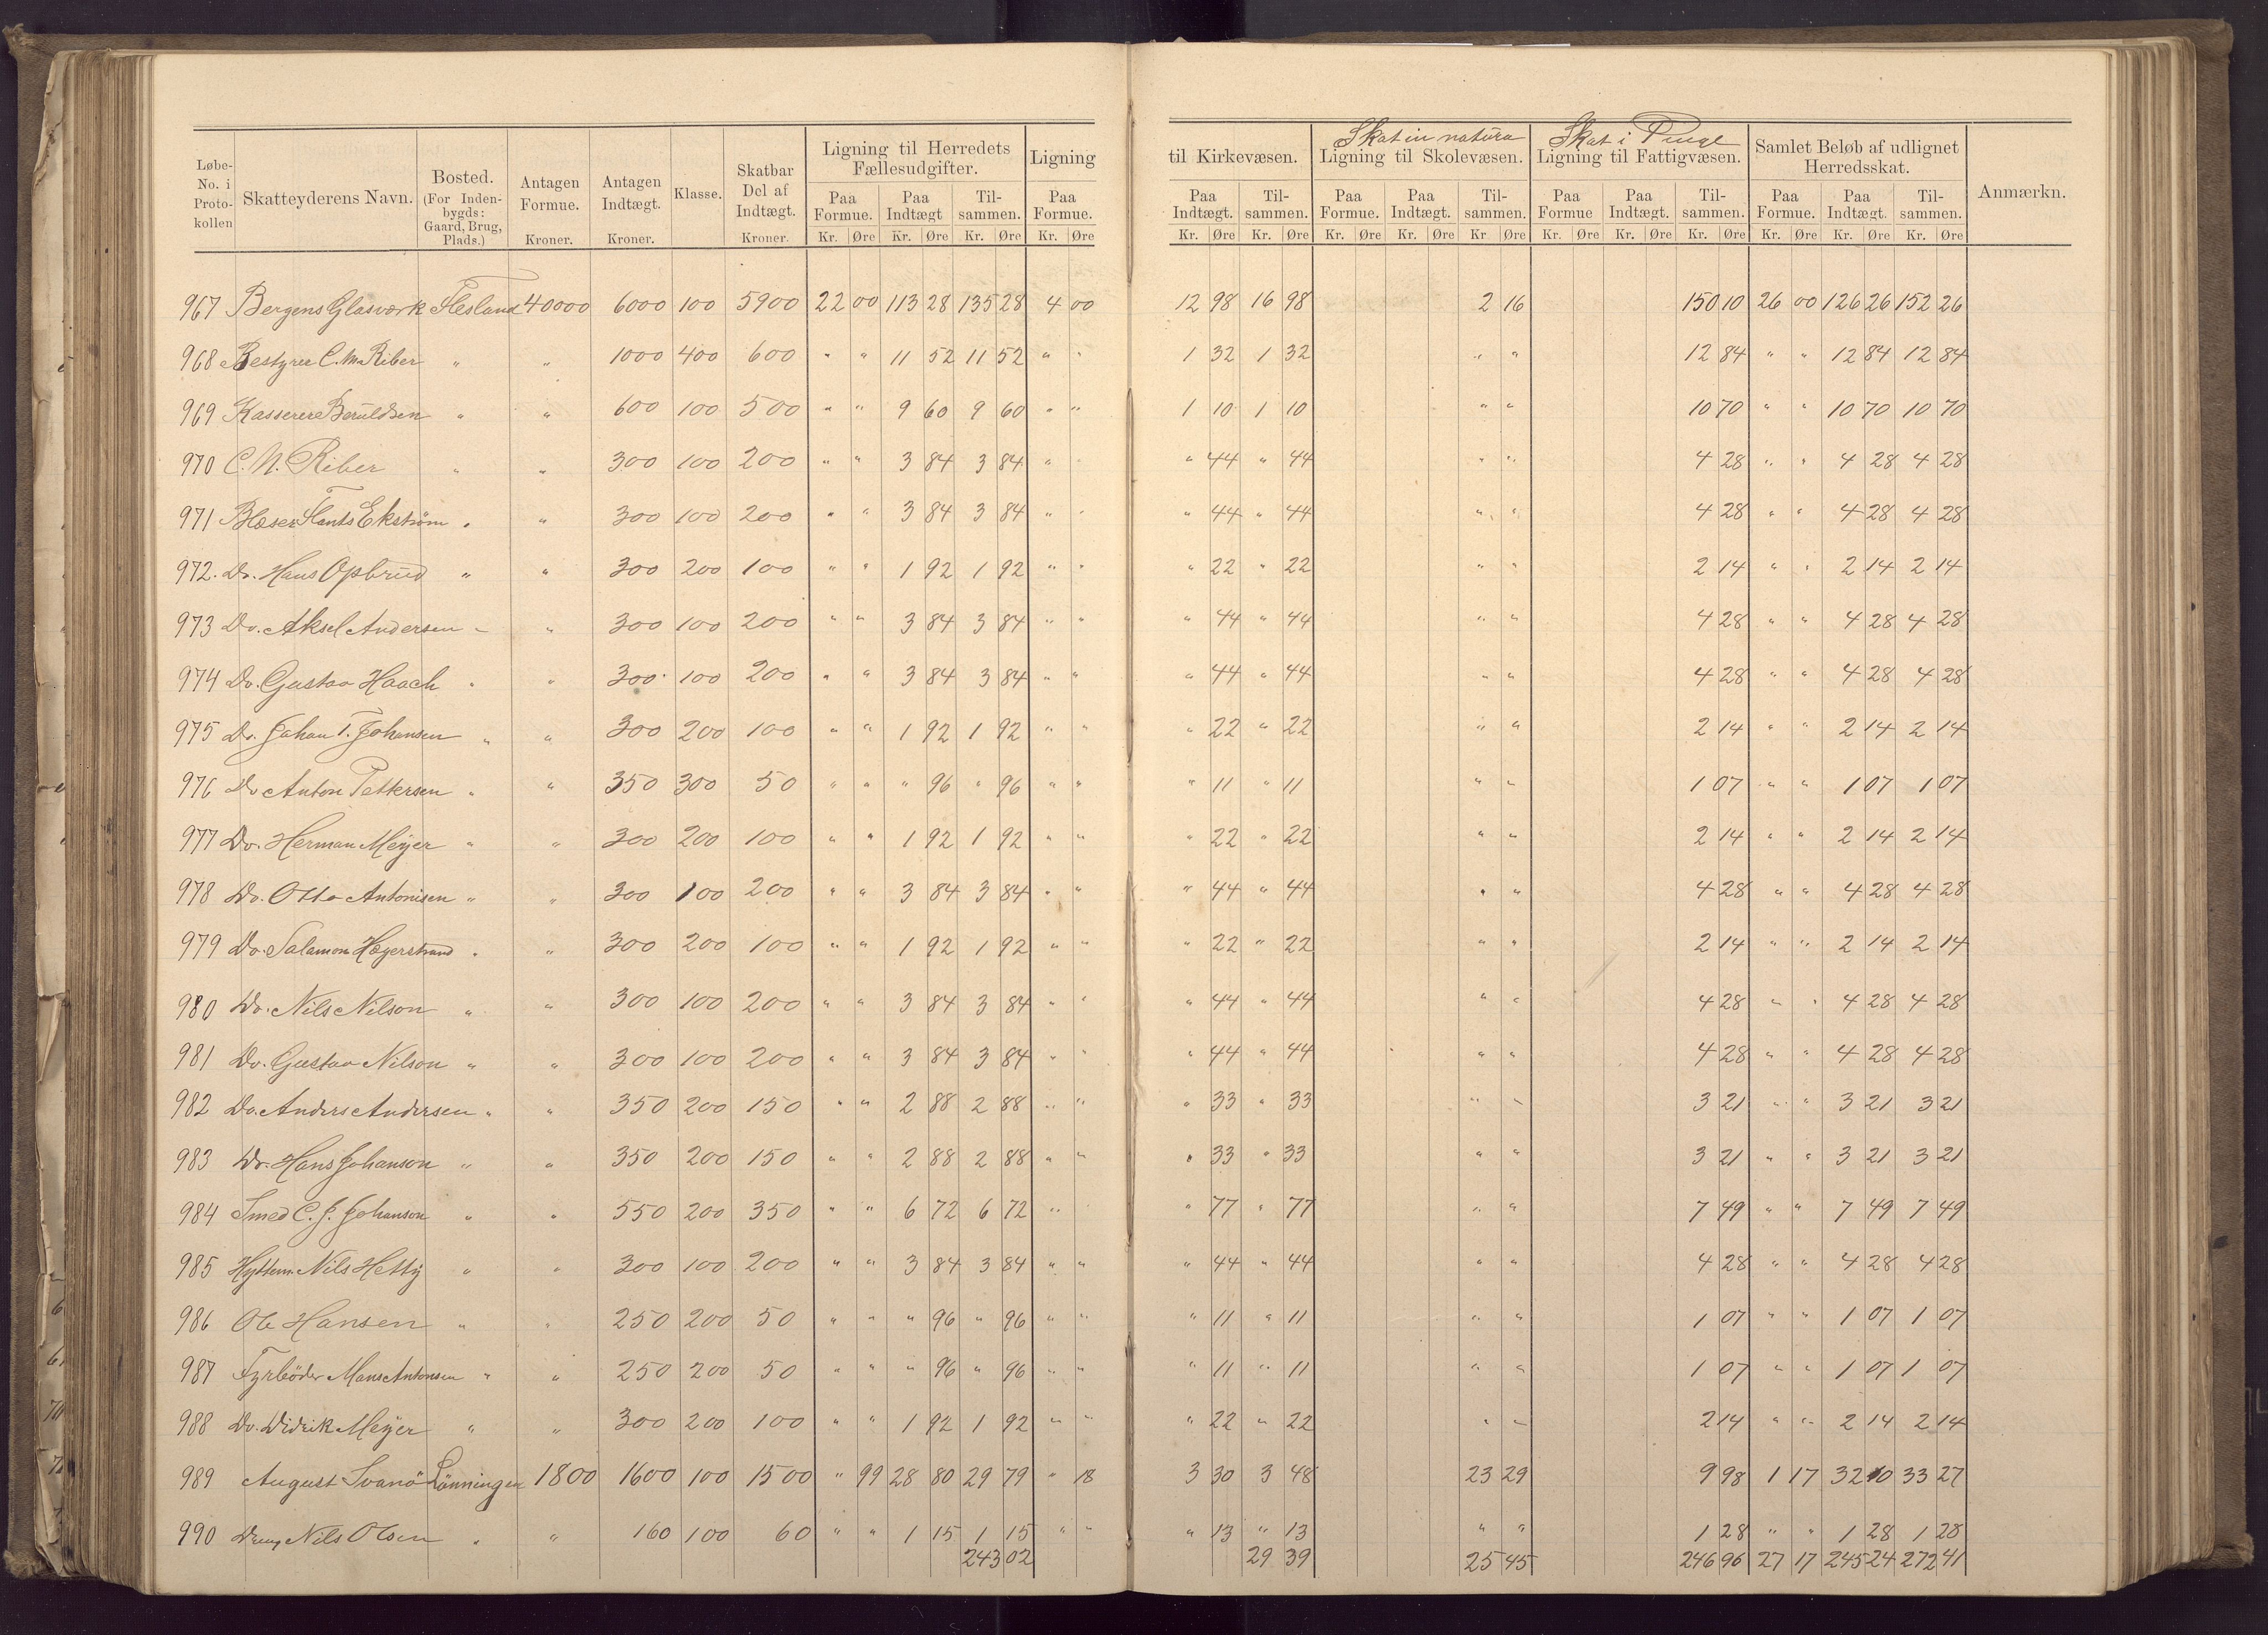 Løbe-No. i Proto-kollen | Skatteyderens Navn. | Bosted. (For Inden-bygds: Gaard, Brug, Plads.) | Antagen Formue. Kroner. | Antagen Indtægt. Kroner. | Klasse. | Skatbar Del af Indtægt. Kroner. | Ligning til Herredets Fællesudgifter. | Ligning til Kirkevæsen. | Skat in natura Ligning til Skolevæsen. | Skat i Penge Ligning til Fattigvæsen. | Samlet Beløb af udlignet Herredsskat. | Anmærkn.
Paa Formue. | Paa Indtægt | Til-sammen. | Paa Formue. | Paa Indtægt. | Til-sammen. | Paa Formue. | Paa Indtægt. | Til-sammen. | Paa Formue | Paa Indtægt. | Til-sammen. | Paa Formue. | Paa Indtægt. | Til-sammen.
Kr. Øre Kr. Øre Kr. Øre Kr. Øre Kr. Øre Kr. Øre Kr. Øre Kr. Øre Kr Øre Kr. Øre Kr. Øre Kr. Øre Kr. Øre Kr. Øre Kr. Øre
967 Bergens Glasværk Flesland 40000 6000 100 5900 22 00 113 28 135 28 4 00 12 98 16 98 2 16 150 10 26 00 126 26 152 26
968 Bestyrer C. M. Riber " " 1000 400 600 " " 11 52 11 52 " " 1 32 1 32 " " 12 84 " " 12 84 12 84
969 Kasserer Beruldsen " " 600 100 500 " " 9 60 9 60 " " 1 10 1 10 " " 10 70 " " 10 70 10 70
970 C. N. Riber " " 300 100 200 " " 3 84 3 84 " " 44 " 44 " " 4 28 " " 4 28 4 28
971 Blæser Ekström " " 300 100 200 " " 3 84 3 84 " " " 44 " 44 " " 4 28 " " 4 28 4 28
972. Do. Hans Opbrud " " 300 200 100 " " 1 92 1 92 " " " 22 " 22 " " 2 14 " " 2 14 2 14
973 Do. Aksel Andersen " " 300 100 200 " " 3 84 3 84 " " " 44 " 44 " " 4 28 " " 4 28 4 28
974 Do. Gustav Haach " " 300 100 200 " " 3 84 3 84 " " " 44 " 44 " " 4 28 " " 4 28 4 28
975 Do. Johan T. Johansen " " 300 200 100 " " 1 92 1 92 " " " 22 " 22 " " 2 14 " " 2 14 2 14
976 Do Anton Pettersen " " 350 300 50 " " " 96 " 96 " " " 11 " 11 " " 1 07 " " 1 07 1 07
977 Do. Herman Meyer " " 300 200 100 " " 1 92 1 92 " " " 22 " 22 " " 2 14 " " 2 14 2 14
978 Do. Otto Antonisen " " 300 100 200 " " 3 84 3 84 " " " 44 " 44 " " 4 28 " " 4 28 4 28
979 Do. Salamon Hægerstrand " " 300 200 100 " " 1 92 1 92 " " " 22 " 22 " " 2 14 " " 2 14 2 14
980 Do. Nils Nilson " " 300 100 200 " " 3 84 3 84 " " " 44 " 44 " " 4 28 " " 4 28 4 28
981 Do. Gustav Nilson " " 300 100 200 " " 3 84 3 84 " " " 44 " 44 " " 4 28 " " 4 28 4 28
982 Do. Anders Andersen " " 350 200 150 " " 2 88 2 88 " " " 33 " 33 " " 3 21 " " 3 21 3 21
983 Do. Hans Johanson " " 350 200 150 " " 2 88 2 88 " " " 33 " 33 " " 3 21 " " 3 21 3 21
984 Smed C. J. Johanson " " 550 200 350 " " 6 72 6 72 " " 77 " 77 " " 7 49 " " 7 49 7 49
985 Hyttem. Nils Hetty " " 300 100 200 " " 3 84 3 84 " " " 44 " 44 " " 4 28 " " 4 28 4 28
986 Ole Hansen " " 250 200 50 " " " 96 " 96 " " " 11 " 11 " " 1 07 " " 1 07 1 07
987 Fyrböder Mans Antonsen " " 250 200 50 " " " 96 " 96 " " " 11 " 11 " " 1 07 " " 1 07 1 07
988 Do. Didrik Meyer " " 300 200 100 " " 1 92 1 92 " " " 22 " 22 " " 2 14 " " 2 14 2 14
989 August Svanö Lönningen 1800 1600 100 1500 " 99 28 80 29 79 " 18 3 30 3 48 23 29 9 98 1 17 32 10 33 27
990 Dreng Nils Olsen " " 160 100 60 " " 1 15 1 15 " " " 13 " 13 " " 1 28 " " 1 28 1 28
243 02 29 39 25 45 246 96 27 17 245 24 272 41